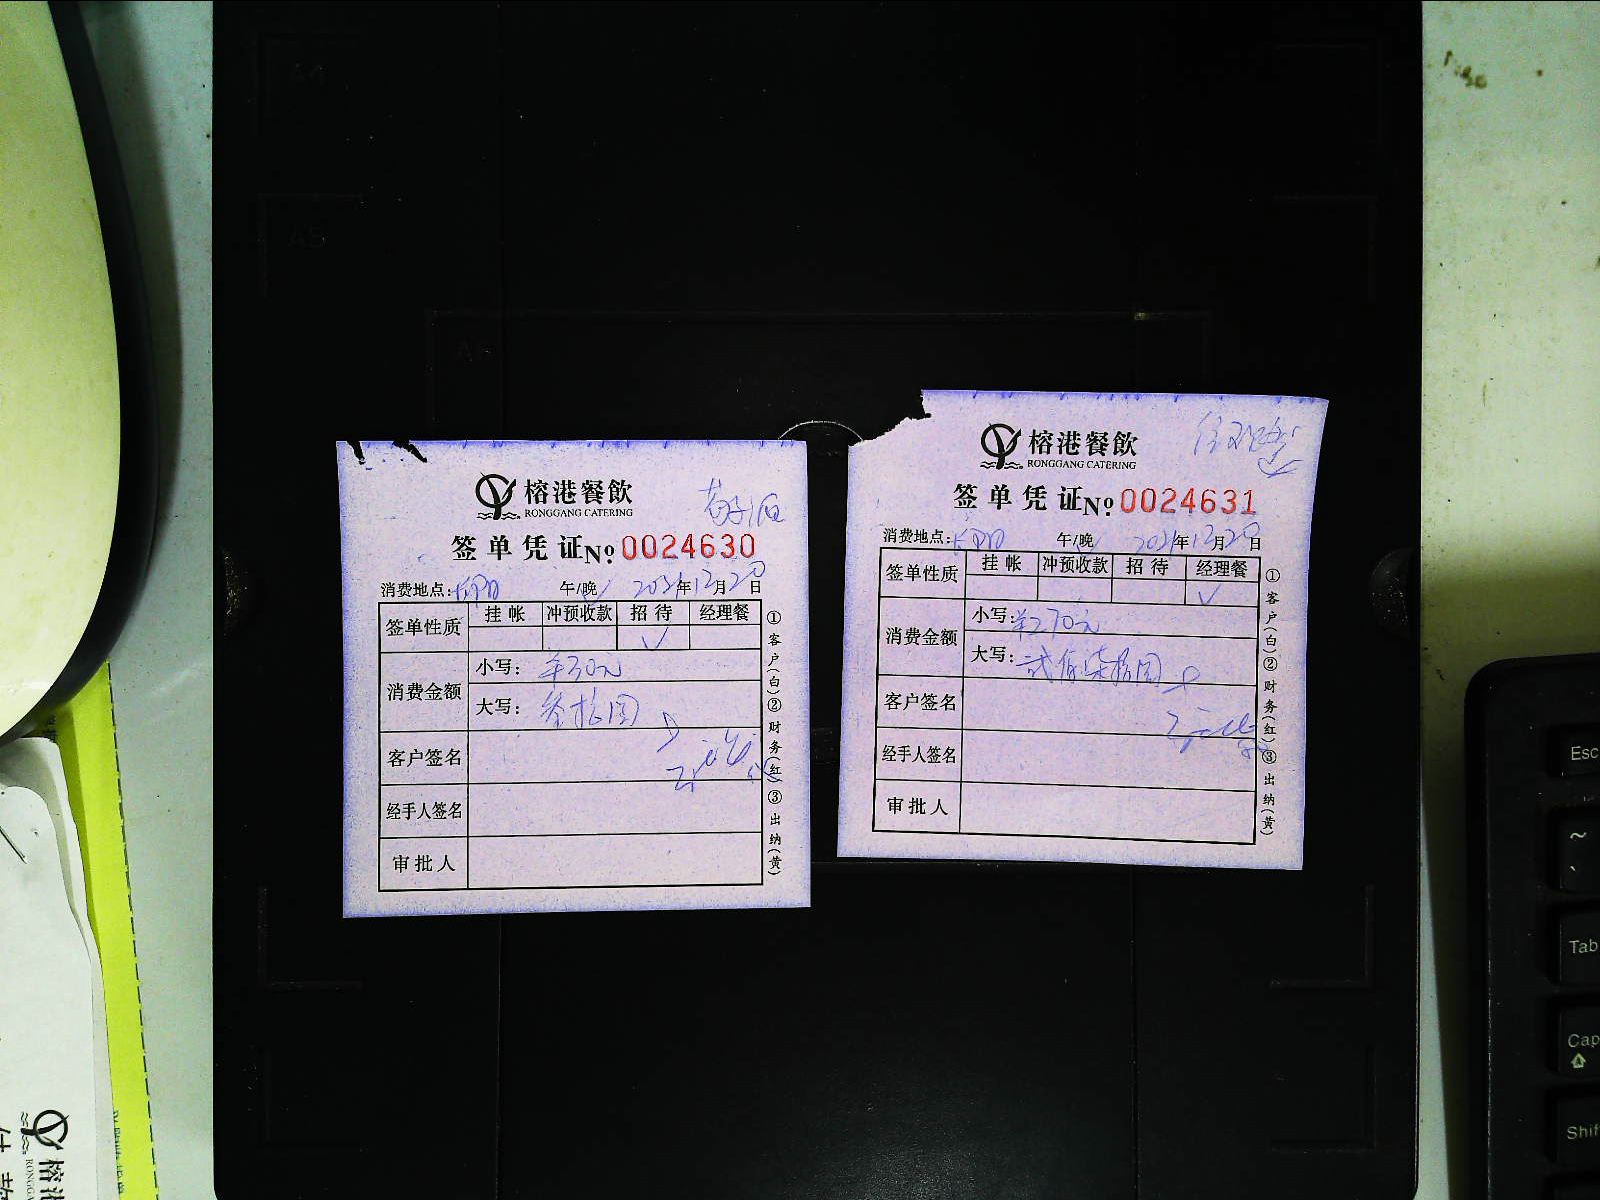 榕港餐飲
RONGGANG CATERING
签单凭证№0024630
消费地点: 午/晚 2021年12月20日
签单性质 挂帐 冲预收款 招待 经理餐
✓
消费金额
小写: ¥30元
大写: 叁拾圆
客户签名
经手人签名
审批人
①客户(白)②财务(红)③出纳(黄)
榕港餐飲
RONGGANG CATERING
签单凭证№0024631
消费地点: 午/晚 2021年12月20日
签单性质 挂帐 冲预收款 招待 经理餐
✓
消费金额
小写: ¥270元
大写: 贰佰柒拾圆
客户签名
经手人签名
审批人
①客户(白)②财务(红)③出纳(黄)
A4
A5
Esc
~
Tab
Cap
Shif
榕港